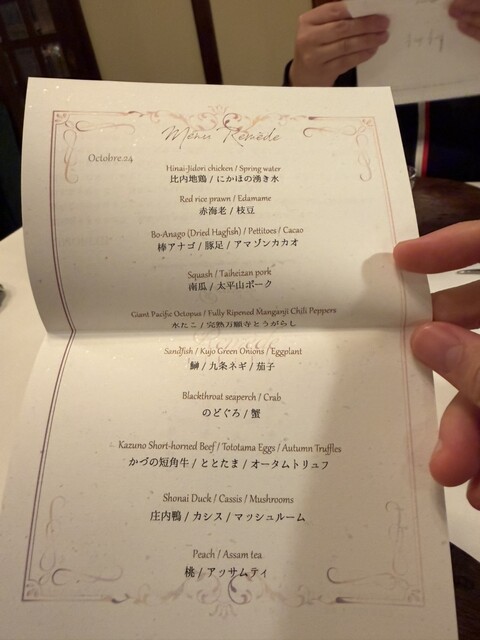 Menu Remède
Octobre.24
Hinai-Jidori chicken / Spring water
比内地鶏 / にかほの湧き水
Red rice prawn / Edamame
赤海老 / 枝豆
Bo-Anago (Dried Hagfish) / Pettitoes / Cacao
棒アナゴ / 豚足 / アマゾンカカオ
Squash / Taiheizan pork
南瓜 / 太平山ポーク
Giant Pacific Octopus / Fully Ripened Manganji Chili Peppers
水たこ / 完熟万願寺とうがらし
Sandfish / Kujo Green Onions / Eggplant
鰰 / 九条ネギ / 茄子
Blackthroat seaperch / Crab
のどぐろ / 蟹
Kazuno Short-horned Beef / Tototama Eggs / Autumn Truffles
かづの短角牛 / ととたま / オータムトリュフ
Shonai Duck / Cassis / Mushrooms
庄内鴨 / カシス / マッシュルーム
Peach / Assam tea
桃 / アッサムティ